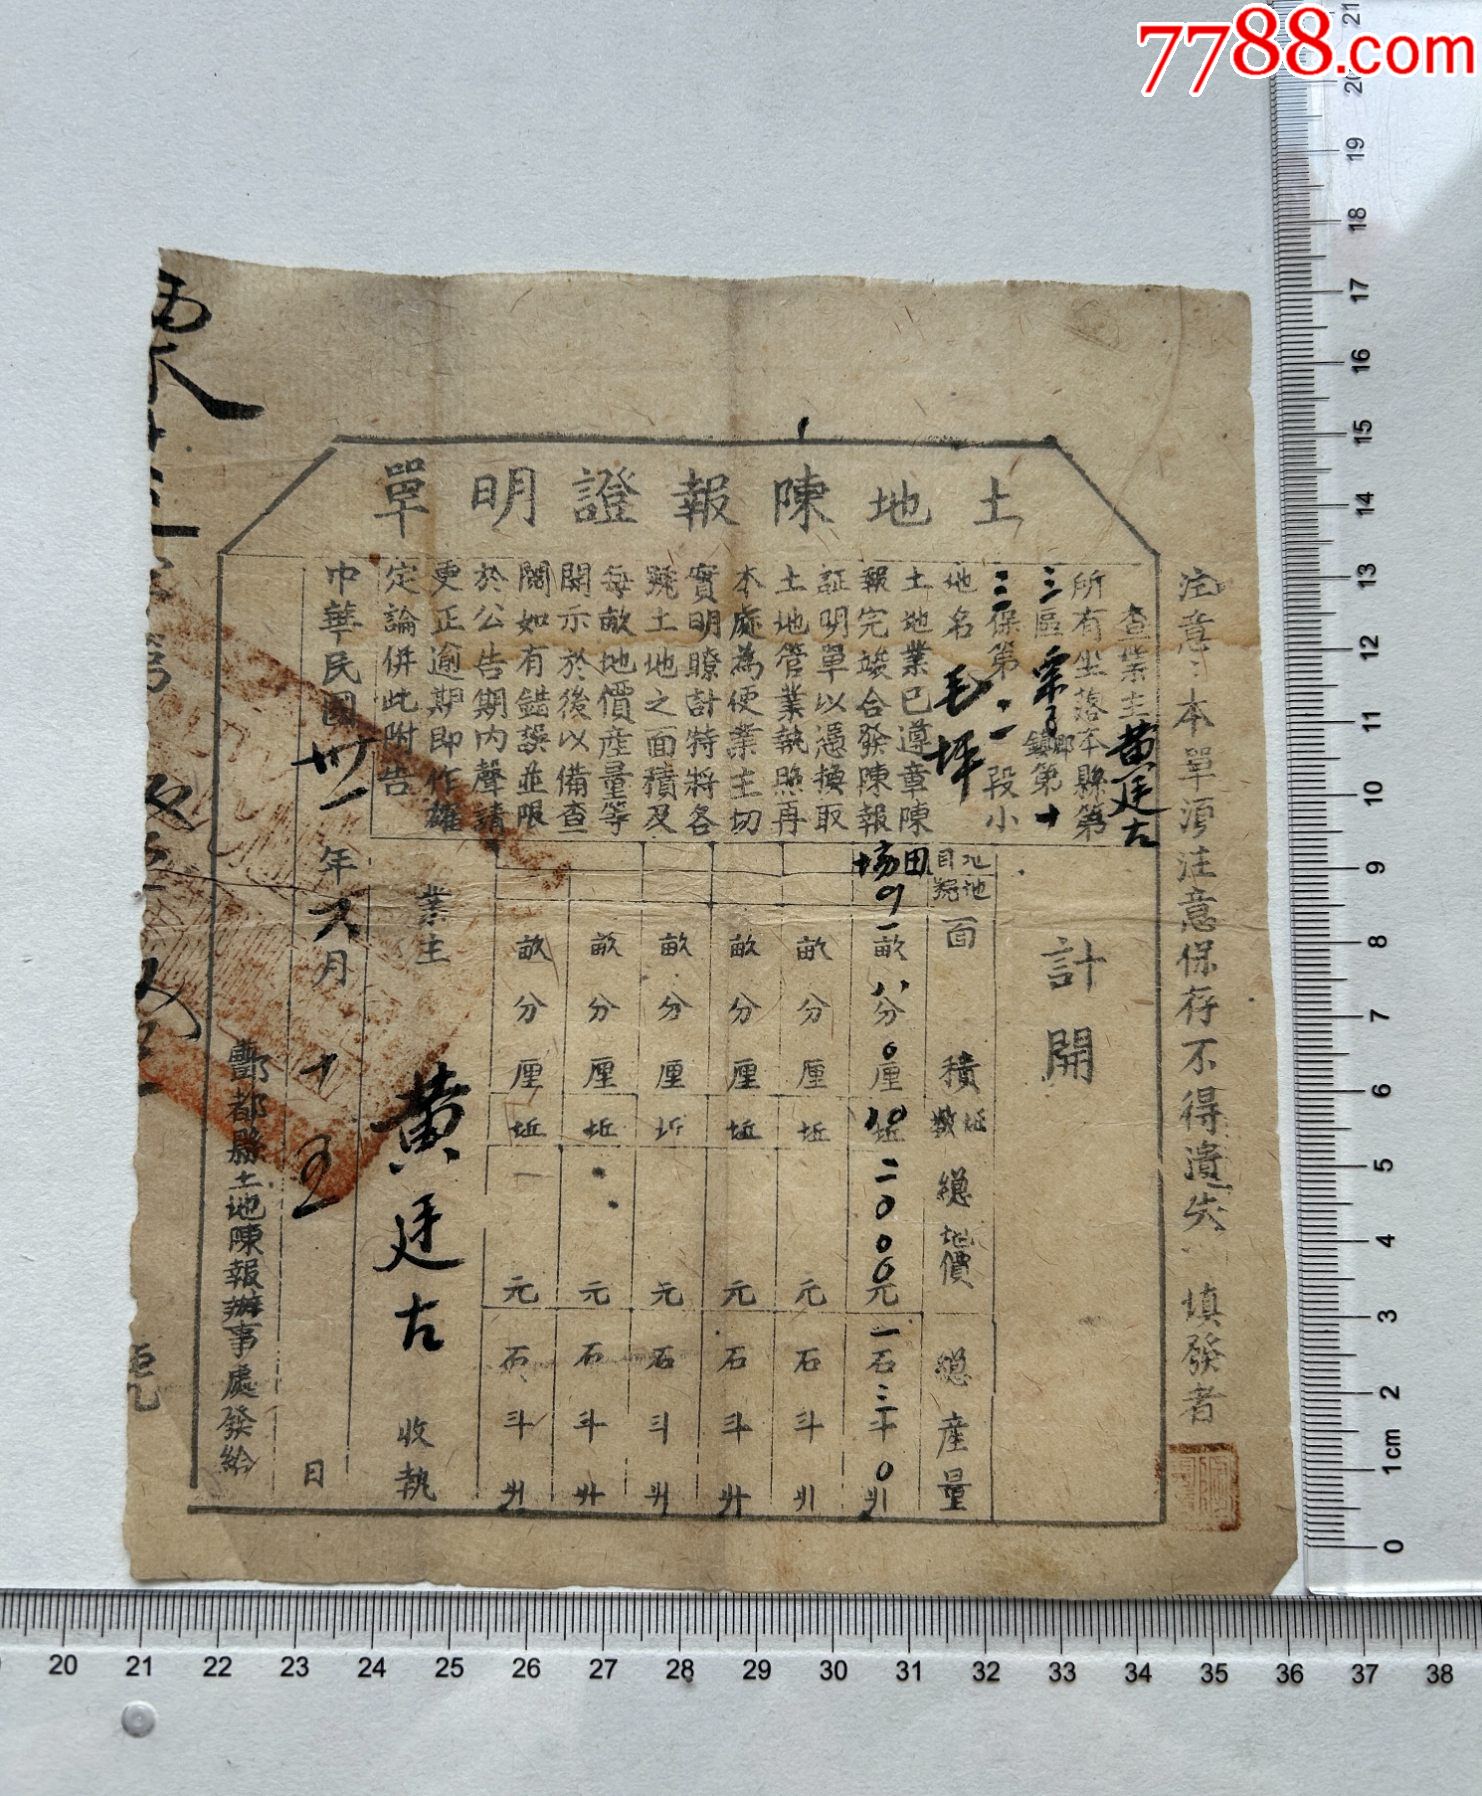 7788.com
土地陳報證明單
注意：本單須注意保存不得遺失 填發者
查業主黄廷古
所有坐落本縣第
三區栗子鄉鎮第十
三保第二段小
地名毛坪
土地業已遵章陳
報完竣合發陳報
証明單以憑換取
土地管業執照再
本處為便業主切
實明瞭計特將各
號土地之面積及
每畝地價產量等
開示於後以備查
閱如有錯誤並限
於公告期內聲請
更正逾期即作確
定論併此附告
計開
地目 地號 面積 坵數 總地價 總產量
田 一畝八分0厘 10坵 二000元 一石三斗0升
畝分厘 坵 元 石斗升
畝分厘 坵 元 石斗升
畝分厘 坵 元 石斗升
畝分厘 坵 元 石斗升
畝分厘 坵 元 石斗升
業主 黄廷古 收執
中華民國卅一年六月十五日
酆都縣土地陳報辦事處發給